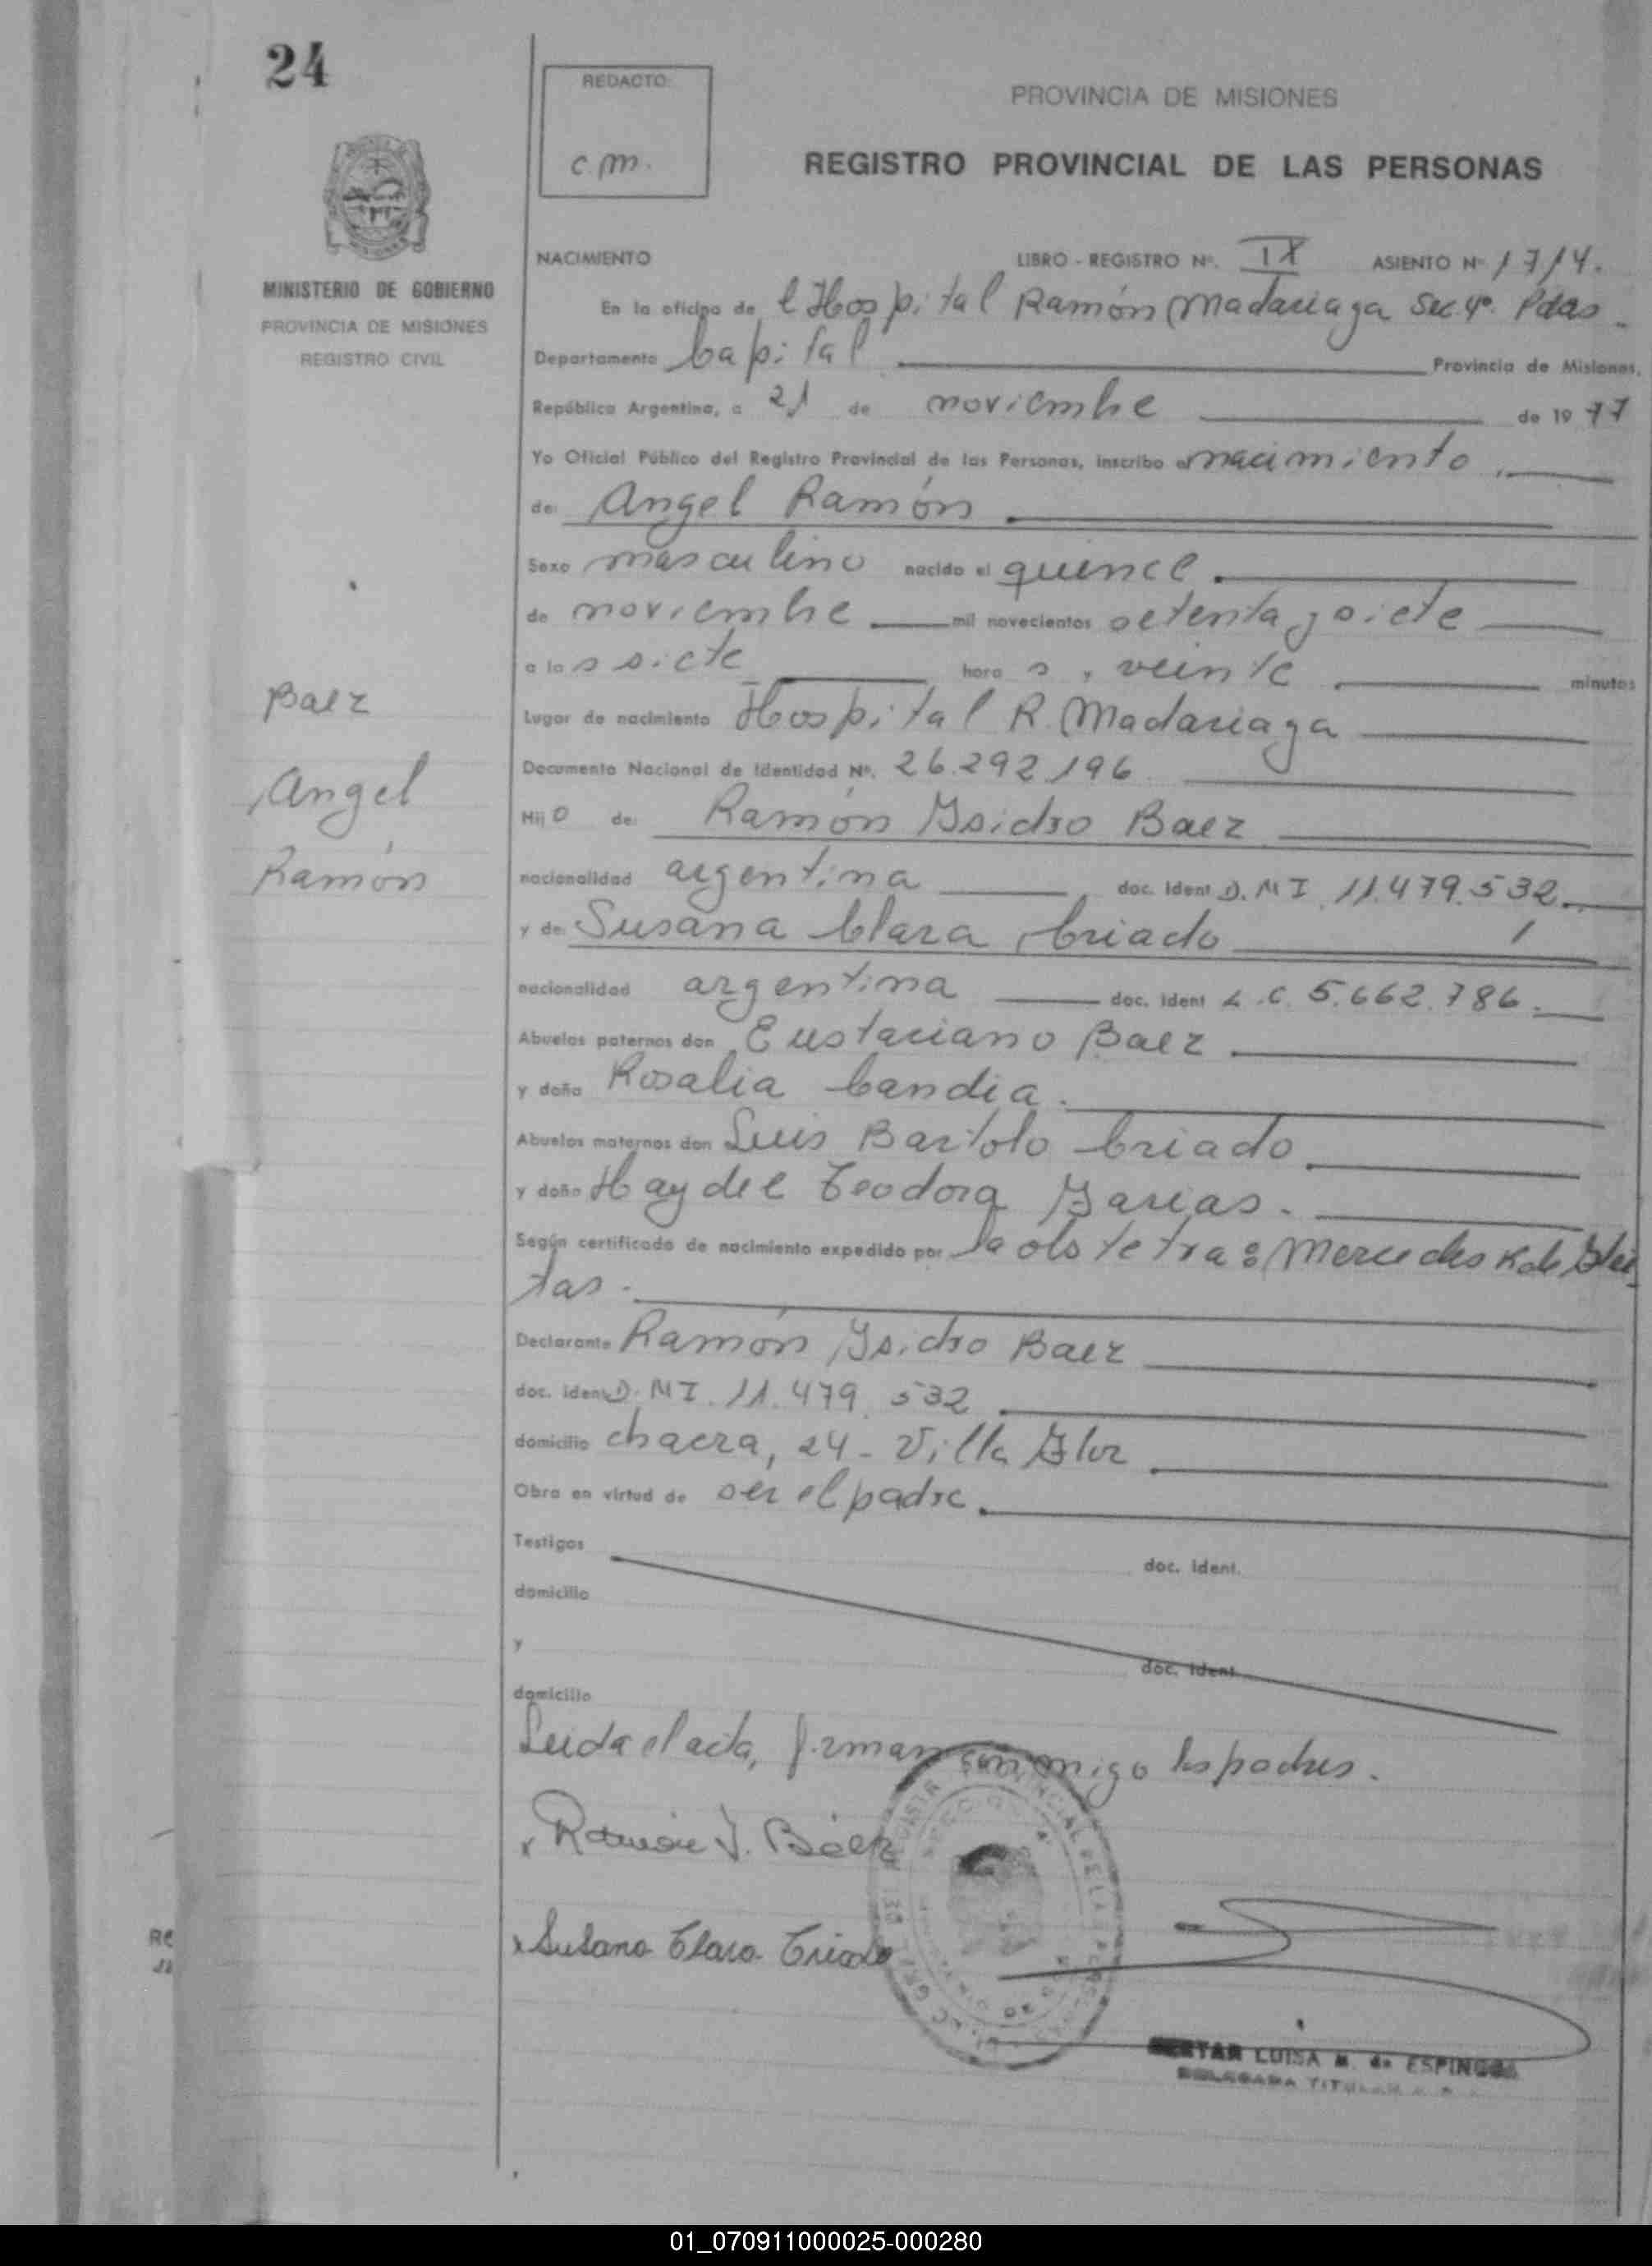 24
REDACTO:
c.m.
PROVINCIA DE MISIONES
REGISTRO PROVINCIAL DE LAS PERSONAS
MINISTERIO DE GOBIERNO
PROVINCIA DE MISIONES
REGISTRO CIVIL
NACIMIENTO LIBRO - REGISTRO Nº. IX ASIENTO Nº 1714.
En la oficina de l Hospital Ramón Madariaga Sec. 4º. Pdas.
Departamento Capital Provincia de Misiones,
República Argentina, a 21 de noviembre de 1977
Yo Oficial Público del Registro Provincial de las Personas, inscribo el nacimiento
de: Angel Ramón
Sexo masculino nacido el quince
de noviembre mil novecientos setenta y siete
a las siete hora s, veinte minutos
Lugar de nacimiento Hospital R. Madariaga
Documento Nacional de Identidad Nº. 26.292.196
Hijo de: Ramón Ysidro Baez
nacionalidad argentina doc. Ident D.M I. 11.479.532.
y de: Susana Clara Criado
nacionalidad argentina doc. Ident L.C. 5.662.786.
Abuelos paternos don Eustaciano Baez
y doña Rosalia Candia.
Abuelos maternos don Luis Bartolo Criado
y doña Haydee Teodora
Según certificado de nacimiento expedido por la obstetra: Mercedes K de
tas.
Declarante Ramón Ysidro Baez
doc. ident D.M I. 11.479.532
domicilio chacra, 24 - Villa
Obra en virtud de ser el padre.
Testigos doc. Ident.
domicilio
y doc. Ident.
domicilio
Leida el acta, firman conmigo los padres.
x Ramón Y. Báez
x Susana Clara Criado
Baez
Angel
Ramón
LUISA M. de ESPINOSA
DELEGADA TITULAR
01_070911000025-000280